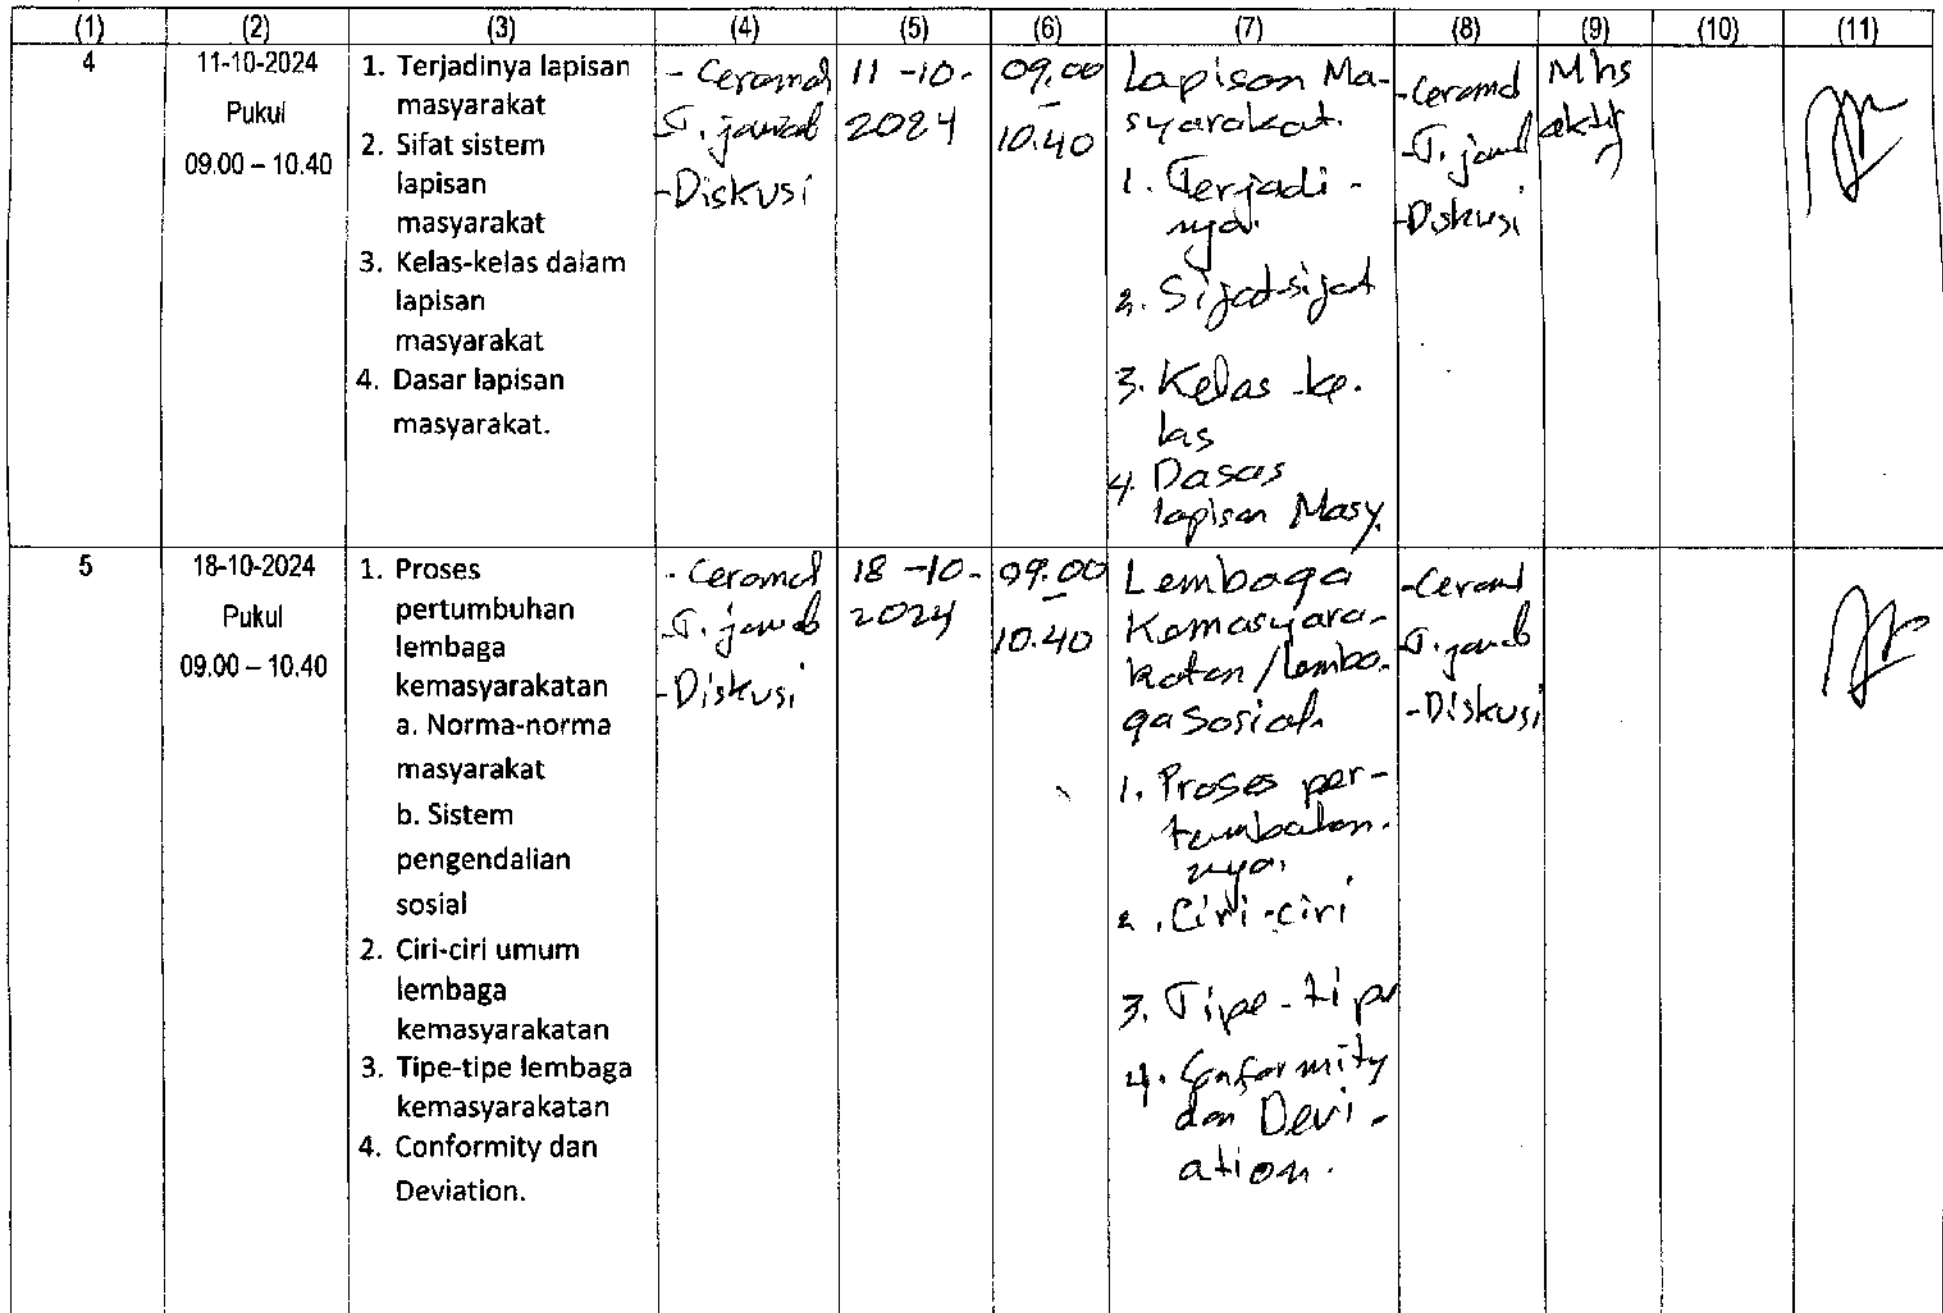 (1) (2) (3) (4) (5) (6) (7) (8) (9) (10) (11)
4
11-10-2024
Pukul
09.00 – 10.40
1. Terjadinya lapisan
masyarakat
2. Sifat sistem
lapisan
masyarakat
3. Kelas-kelas dalam
lapisan
masyarakat
4. Dasar lapisan
masyarakat.
- Ceramah
- T. jawab
- Diskusi
11 -10-
2024
09.00
–
10.40
Lapisan Ma-
syarakat.
1. Terjadi-
nya.
2. Sifat-sifat
3. Kelas-ke-
las
4. Dasar
lapisan Masy.
- Ceramah
- T. jawab
- Diskusi
Mhs
aktif
5
18-10-2024
Pukul
09.00 – 10.40
1. Proses
pertumbuhan
lembaga
kemasyarakatan
a. Norma-norma
masyarakat
b. Sistem
pengendalian
sosial
2. Ciri-ciri umum
lembaga
kemasyarakatan
3. Tipe-tipe lembaga
kemasyarakatan
4. Conformity dan
Deviation.
- Ceramah
- T. jawab
- Diskusi
18 -10-
2024
09.00
–
10.40
Lembaga
Kemasyara-
katan / Lemba-
ga Sosial.
1. Proses per-
tumbuhan-
nya.
2. Ciri-ciri
3. Tipe-tipe
4. Conformity
dan Devi-
ation.
- Ceramah
- T. jawab
- Diskusi